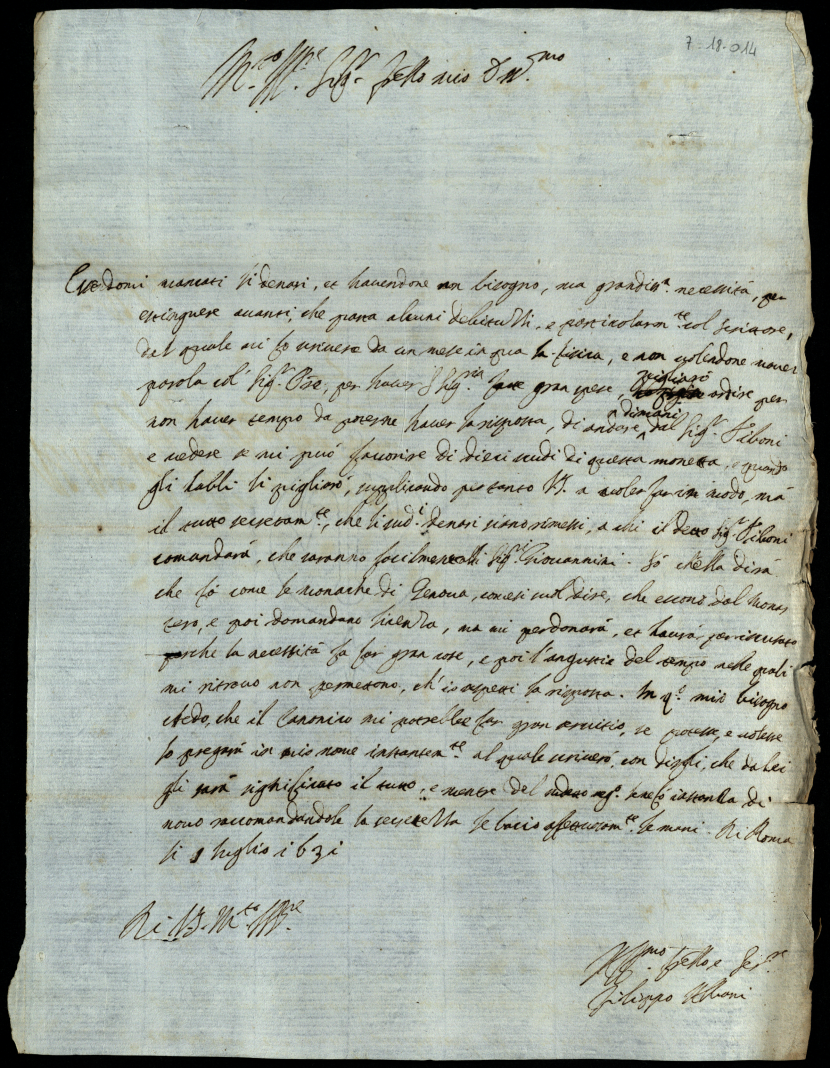 7-18-014
M.to Ill.re Sig.r fratello mio Oss.mo
Essendomi mancati li denari, et havendone non bisogno, ma grandiss.a necessità, per
estinguere avanti, che parta alcuni debitucci, e particolarm.te col scrittore,
dal quale mi fo scrivere da un mese in qua la, e non volendone mover
parola col Sig.r, per haver gran spese, pigliarò ardire per
non haver tempo da poterne haver la risposta, di andare dimani dal Sig.r Fiboni
e vedere se mi può favorire di dieci scudi di questa monetta, e quando
gli habbi li pigliarò, supplicando pertanto V.S. a voler far in modo, mà
il tutto secretam.te, che li sud.i denari siano rimessi, a chi il detto Sig.r Fiboni
comandarà, che saranno facilmente li Sig.ri Giovannini. Sò ch'ella dirà
che fò come le monache di Genova, come si suol dire, che escono dal monas
tero, e poi domandano licenza, ma mi perdonarà, et haurà per iscusato
perche la necessità fa far gran cose, e poi l'angustie del tempo nelle quali
mi ritrovo non permettono, ch'io aspetti la risposta. In q.o mio bisogno
credo, che il Canonico mi potrebbe far gran servitio, se potesse, e volesse
lo pregarà in mio nome instantem.te al quale scriverò, con dirgli, che da lei
gli sarà significato il tutto, e mentre del
novo raccomandandole la secretezza le bacio affettuosam.te le mani. Di Roma
li 1 luglio 1631
Di V.S. M.to Ill.re
Aff.mo fratello e Ser.re
Filippo